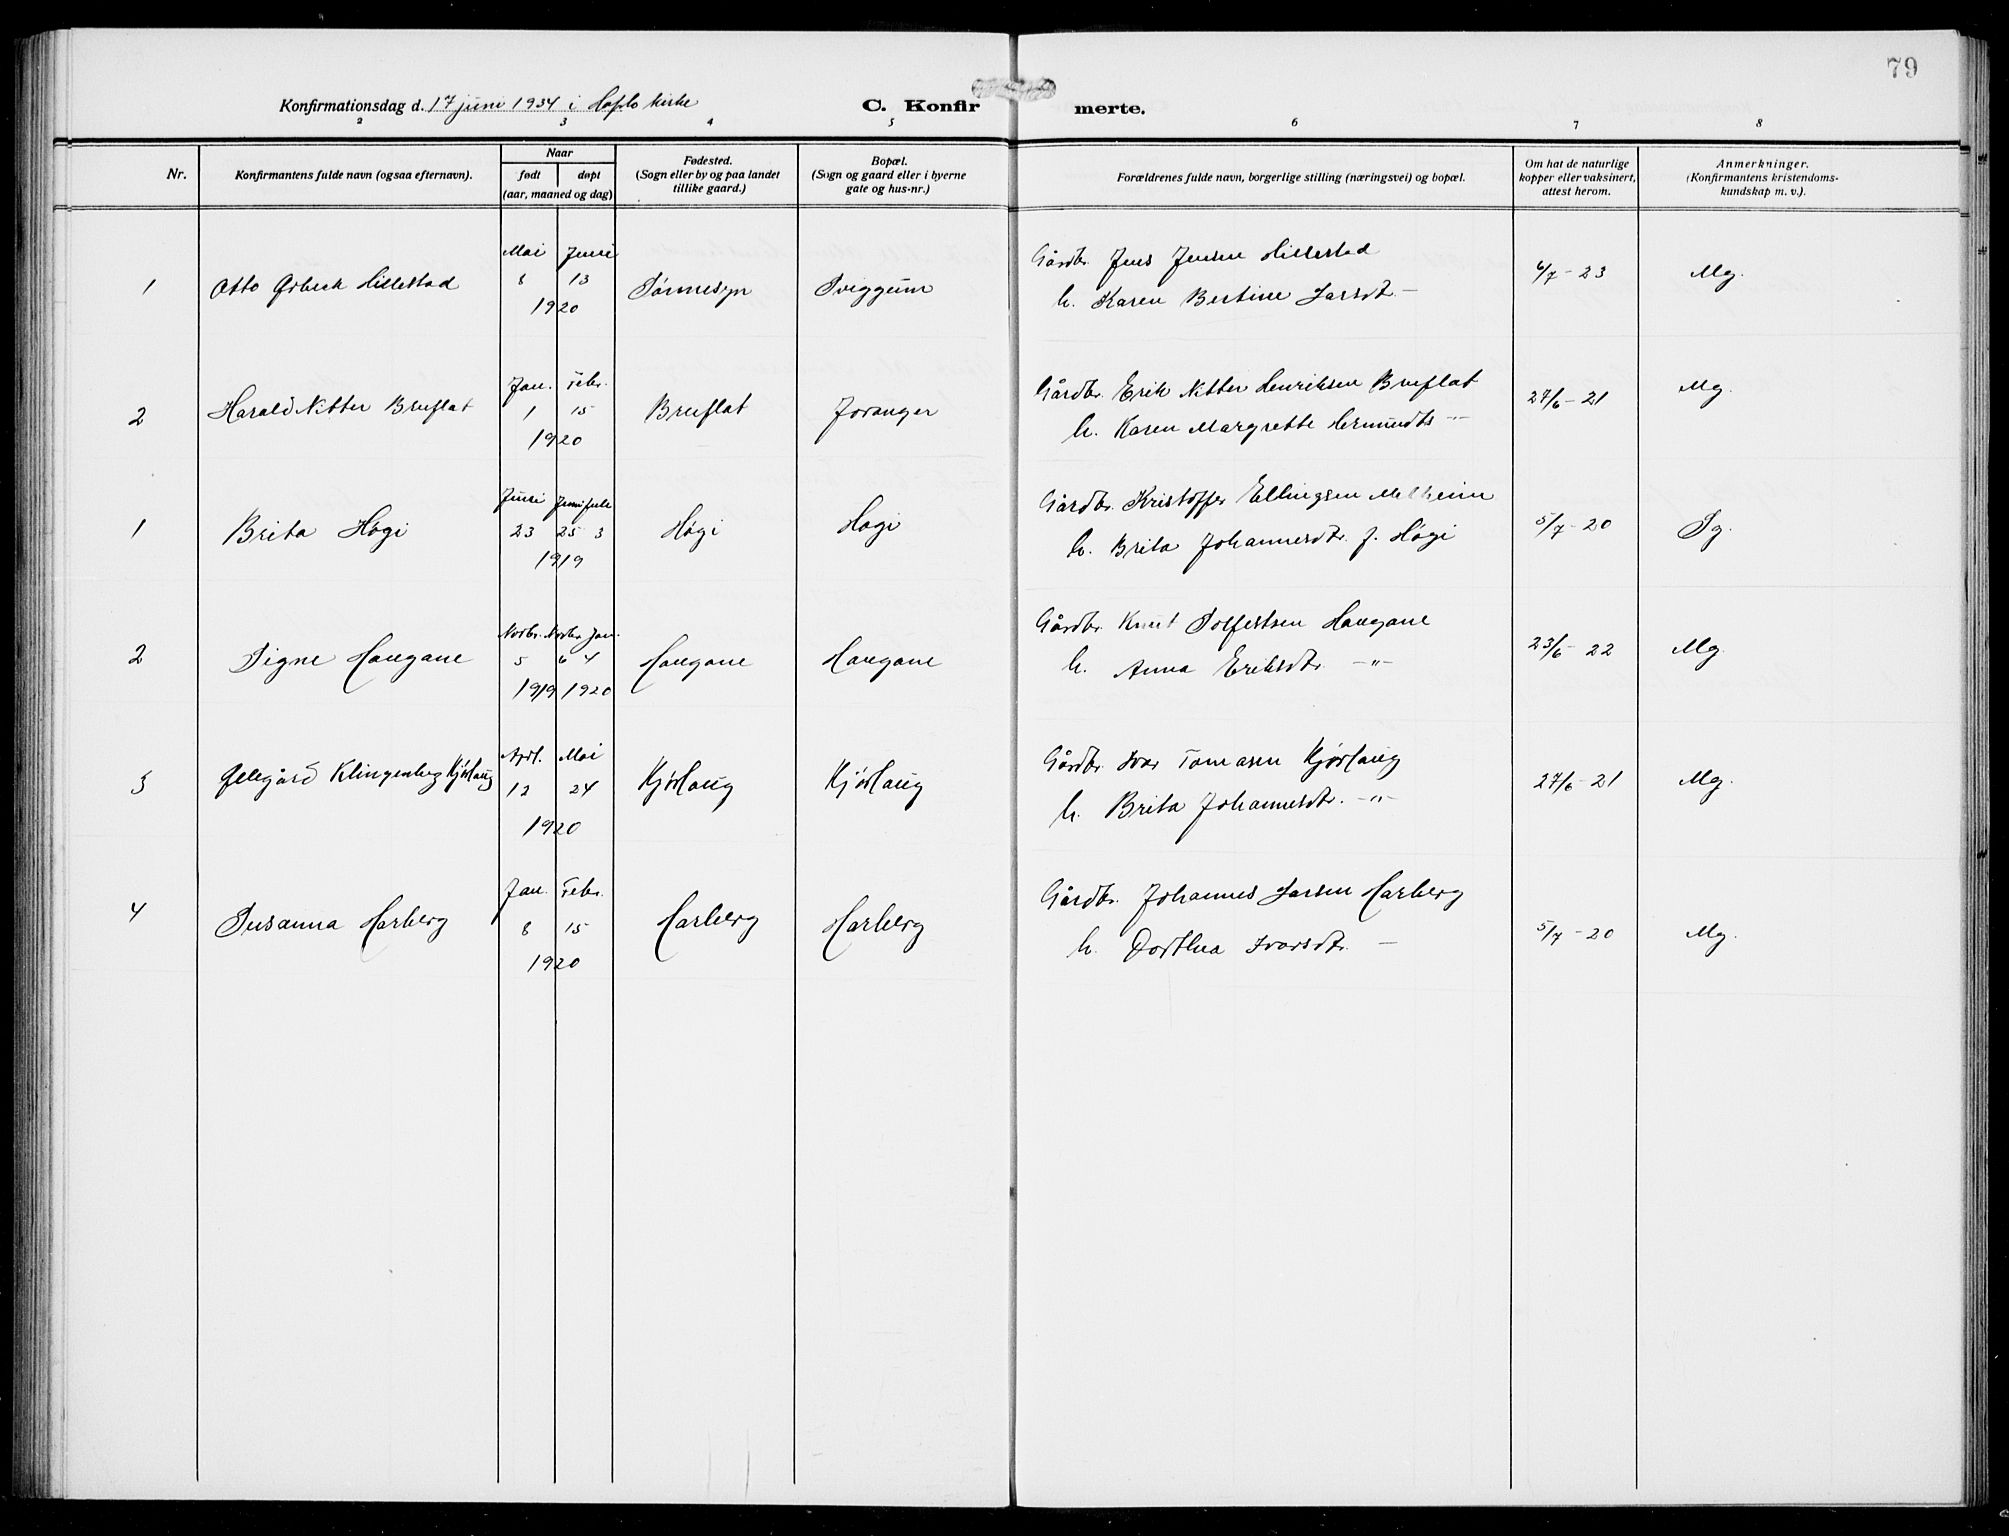 79
Konfirmationsdag d. 17 juni 1934 i Hafslo kirke
C. Konfir merte.
2 3 4 5 6 7 8
Nr.
Konfirmantens fulde navn (ogsaa efternavn).
Naar
født døpt
(aar, maaned og dag)
Fødested.
(Sogn eller by og paa landet
tillike gaard.)
Bopæl.
(Sogn og gaard eller i byerne
gate og hus-nr.)
Forældrenes fulde navn, borgerlige stilling (næringsvei) og bopæl.
Om hat de naturlige
kopper eller vaksinert,
attest herom.
Anmerkninger.
(Konfirmantens kristendoms-
kundskap m. v.).
Mai Juni
1 Otto Hillestad 8 13 Sørnesyn Sviggum
1920
Gårdbr. Jens Jensen Hillestad
h. Karen Bertine Larsdt. —
6/7 - 23 Mg.
Jan. Febr.
2 Harald Nitter Bruflat 1 15 Bruflat Joranger
1920
Gårdbr. Erik Nitter Henriksen Bruflat
h. Karen Margrethe Hermundts —"—
27/6 - 21 Mg.
Juni Juni juli
1 Brita Høgi 23 25 3 Høgi Høgi
1919
Gårdbr. Kristoffer Ellingsen Melheim
h. Brita Johannesdtr. f. Høgi
5/7 - 20 Sg.
Novbr. Novbr. Jan.
2 Signe Haugane 5 6 4 Haugane Haugane
1919 1920
Gårdbr. Knut Solfestsen Haugane
h. Anna Eriksdtr. —"—
23/6 - 22 Mg.
April. Mai
3 Øllegård Klingenberg Kjørlaug 12 24 Kjørlaug Kjørlaug
1920
Gårdbr. Ivar Tomasen Kjørlaug
h. Brita Johannesdtr. —"—
27/6 - 21 Mg.
Jan. Febr.
4 Susanna Marberg 8 15 Marberg Marberg
1920
Gårdbr. Johannes Larsen Marberg
h. Dorthea Ivarsdtr. —
5/7 - 20 Mg.